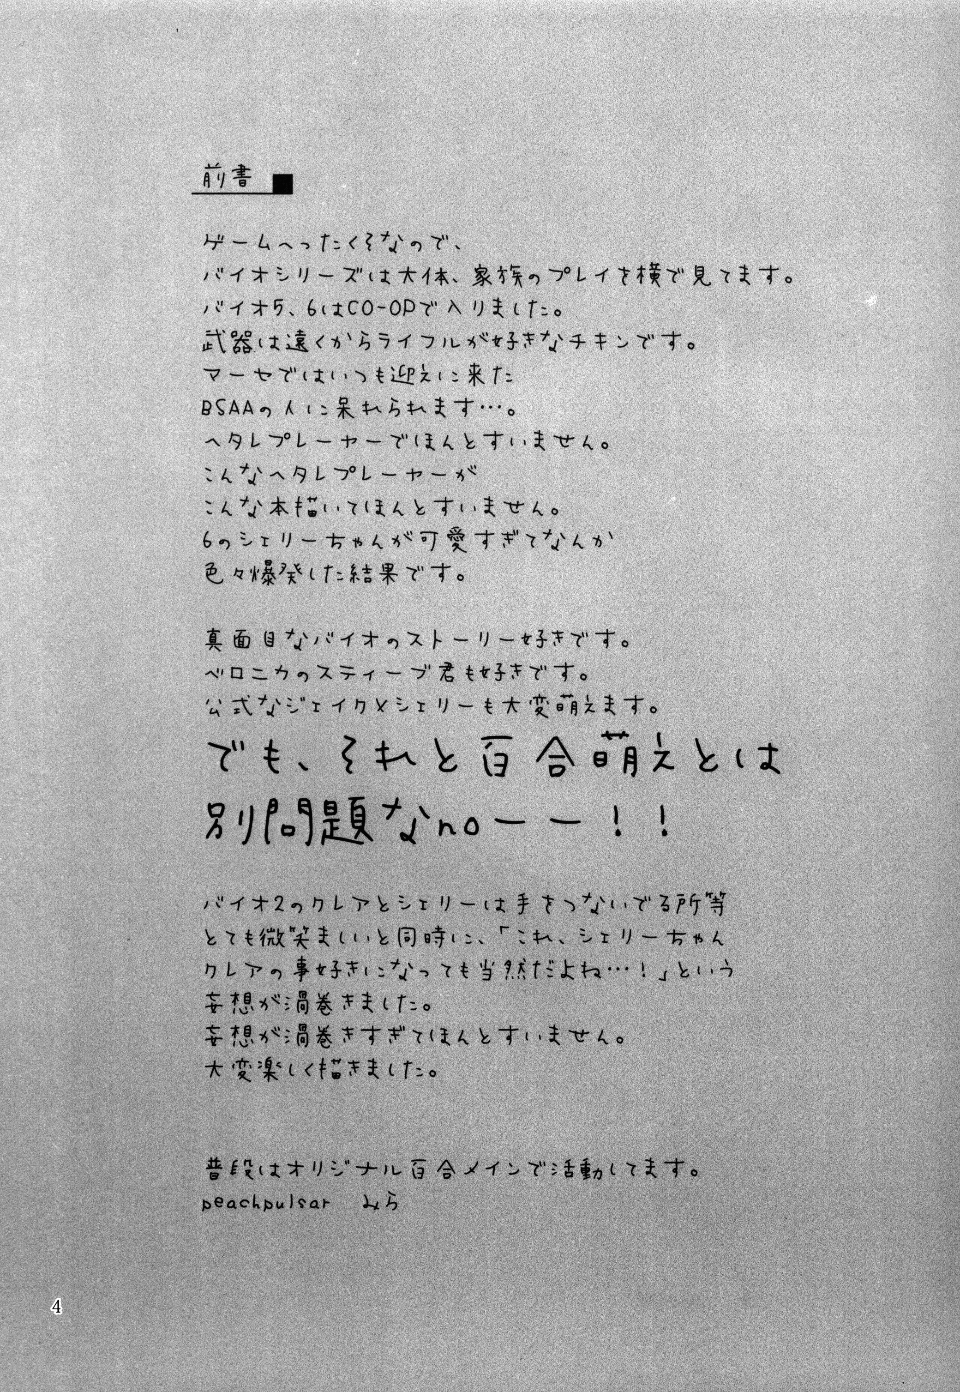 前書
ゲームへったくそなので、
バイオシリーズは大体、家族のプレイを横で見てます。
バイオ5、6はCO-OPで入りました。
武器は遠くからライフルが好きなチキンです。
マーセではいつも迎えに来た
BSAAの人に呆れられます…。
ヘタレプレーヤーでほんとすいません。
こんなヘタレプレーヤーが
こんな本描いてほんとすいません。
6のシェリーちゃんが可愛すぎてなんか
色々爆発した結果です。
真面目なバイオのストーリー好きです。
ベロニカのスティーブ君も好きです。
公式なジェイク×シェリーも大変萌えます。
でも、それと百合萌えとは
別問題なnoーー！！
バイオ2のクレアとシェリーは手をつないでる所等
とても微笑ましいと同時に、「これ、シェリーちゃん
クレアの事好きになっても当然だよね…！」という
妄想が渦巻きました。
妄想が渦巻きすぎてほんとすいません。
大変楽しく描きました。
普段はオリジナル百合メインで活動してます。
peachpulsar みら
4